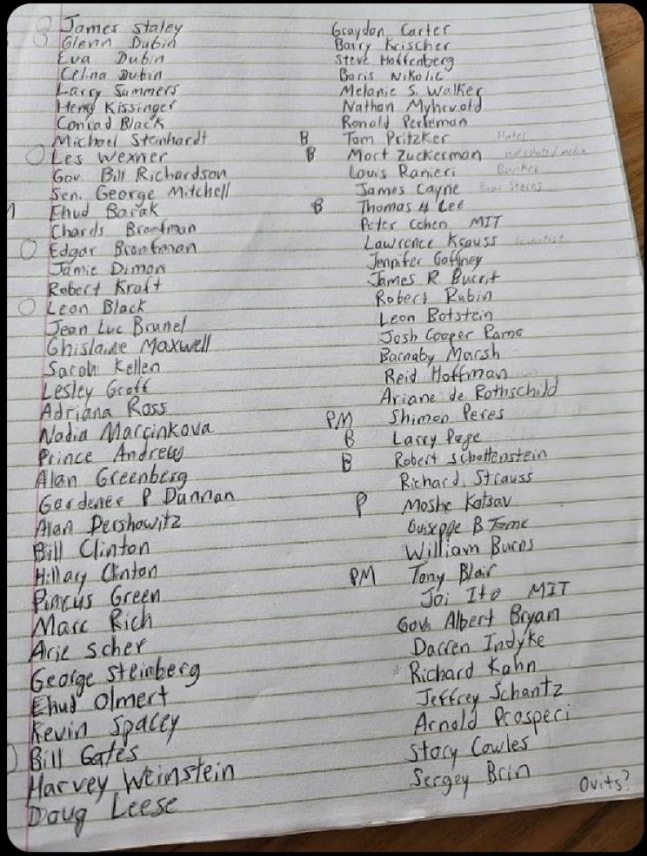 James Staley
Glenn Dubin
Eva Dubin
Celina Dubin
Larry Summers
Henry Kissinger
Conrad Black
Michael Steinhardt
Les Wexner
Gov. Bill Richardson
Sen. George Mitchell
Ehud Barak
Charles Bronfman
Edgar Bronfman
Jamie Dimon
Robert Kraft
Leon Black
Jean Luc Brunel
Ghislaine Maxwell
Sarah Kellen
Lesley Groff
Adriana Ross
Nadia Marcinkova
Prince Andrew
Alan Greenberg
Gardenee P Dunnan
Alan Dershowitz
Bill Clinton
Hillary Clinton
Pincus Green
Marc Rich
Arie Scher
George Steinberg
Ehud Olmert
Kevin Spacey
Bill Gates
Harvey Weinstein
Doug Leese
Graydon Carter
Barry Krischer
Steve Hoffenberg
Boris Nikolic
Melanie S. Walker
Nathan Myhrvold
Ronald Perleman
B Tom Pritzker Hotel
B Mort Zuckerman
Louis Ranieri Banker
James Cayne Bear Sterns
B Thomas H Lee
Peter Cohen MIT
Lawrence Krauss scientist
Jennifer Gaffney
James R. Burrit
Robert Rubin
Leon Botstein
Josh Cooper Ramo
Barnaby Marsh
Reid Hoffman
Ariane de Rothschild
PM Shimon Peres
B Larry Page
B Robert Schottenstein
Richard. Strauss
P Moshe Katsav
Guiseppe B Tome
William Burns
PM Tony Blair
Joi Ito MIT
Gov. Albert Bryan
Darren Indyke
Richard Kahn
Jeffrey Schantz
Arnold Prosperi
Story Cowles
Sergey Brin
Ovits?